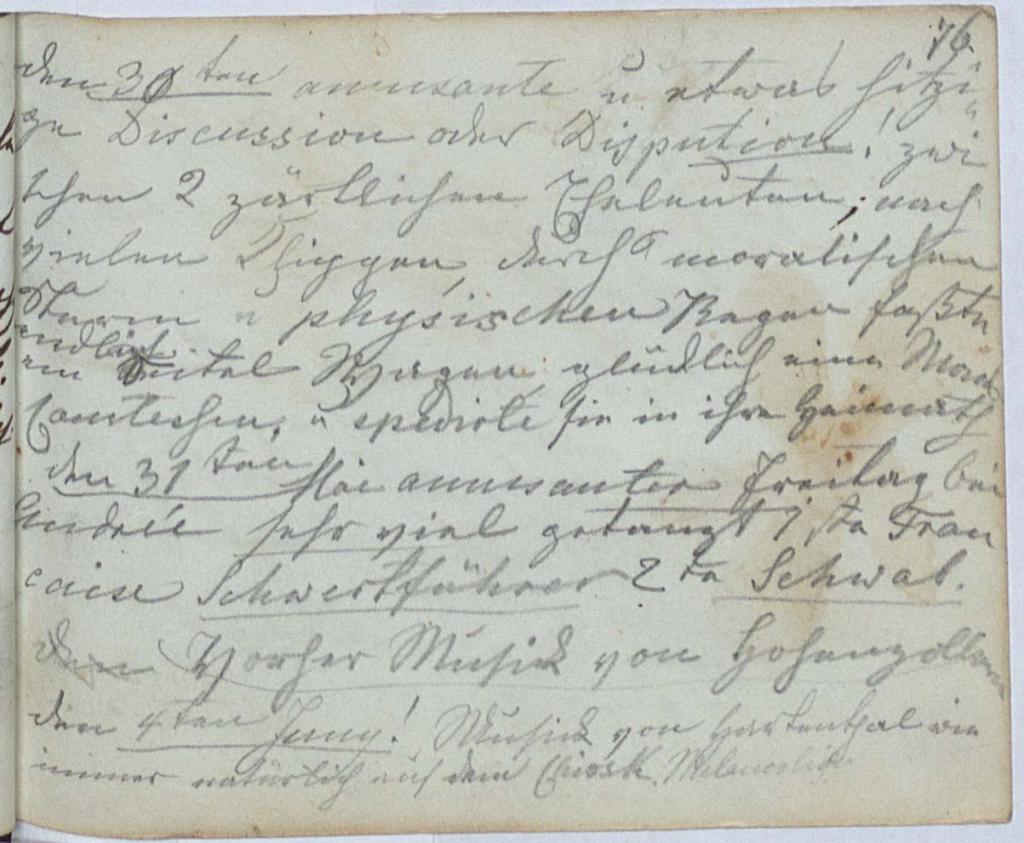 76.
den 30ten amusante u etwas hitzi-
ge Discussion oder Disputtion! zwi
schen 2 zärtlichen Eheleuten; nach
vielen durch moralischen
Sturm u physischen Regen faßte
endlich
ein Wagen, glücklich eine
Comteschen, u spedirte sie in ihre Heimath
den 31ten Mai amusanter Freitag bei
Andrée sehr viel getanzt 1ste Fran
caise Schwertführer 2te Schwab.
den Vorher Musick von Hohenzollern
den 4ten Juny! Musick von Hartenthal wie
immer natürlich auf dem Chiosk. Melancholisch